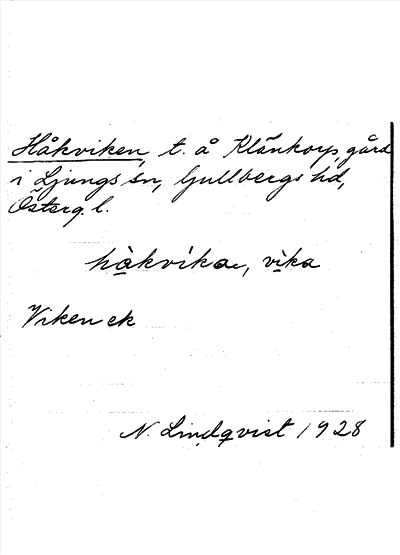 Håkviken, t. å Klänkorp gård
i Ljungs sn, Gullbergs hd,
Österg. l.
hàkvíka, vìka
Viken ek
N. Lindqvist 1928